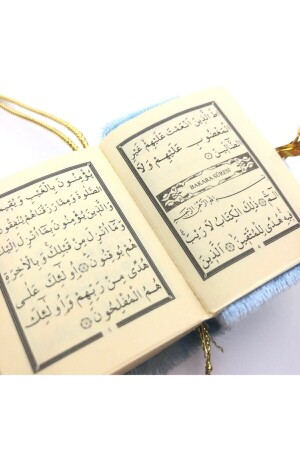 طَ الَّذِينَ اَنْعَمْتَ عَلَيْهِمْ غَيْرِ
الْمَغْضُوبِ عَلَيْهِمْ وَلَا
الضَّالِّينَ
BAKARA SÛRESİ
بِسْمِ اللهِ الرَّحْمٰنِ الرَّحِيمِ
الٓمٓ ذٰلِكَ الْكِتَابُ لَا رَيْبَ
فِيهِ هُدًى لِلْمُتَّقِينَ الَّذِينَ
٤
يُؤْمِنُونَ بِالْغَيْبِ وَيُقِي
الصَّلٰوةَ وَمِمَّا رَزَقْنَاهُمْ يُنْفِقُونَ
وَالَّذِينَ يُؤْمِنُونَ بِمَا اُنْزِلَ اِلَيْكَ
وَمَا اُنْزِلَ مِنْ قَبْلِكَ وَبِالْاٰخِرَةِ
هُمْ يُوقِنُونَ اُولٰئِكَ عَلٰى
هُدًى مِنْ رَبِّهِمْ وَاُولٰئِكَ
هُمُ الْمُفْلِحُونَ